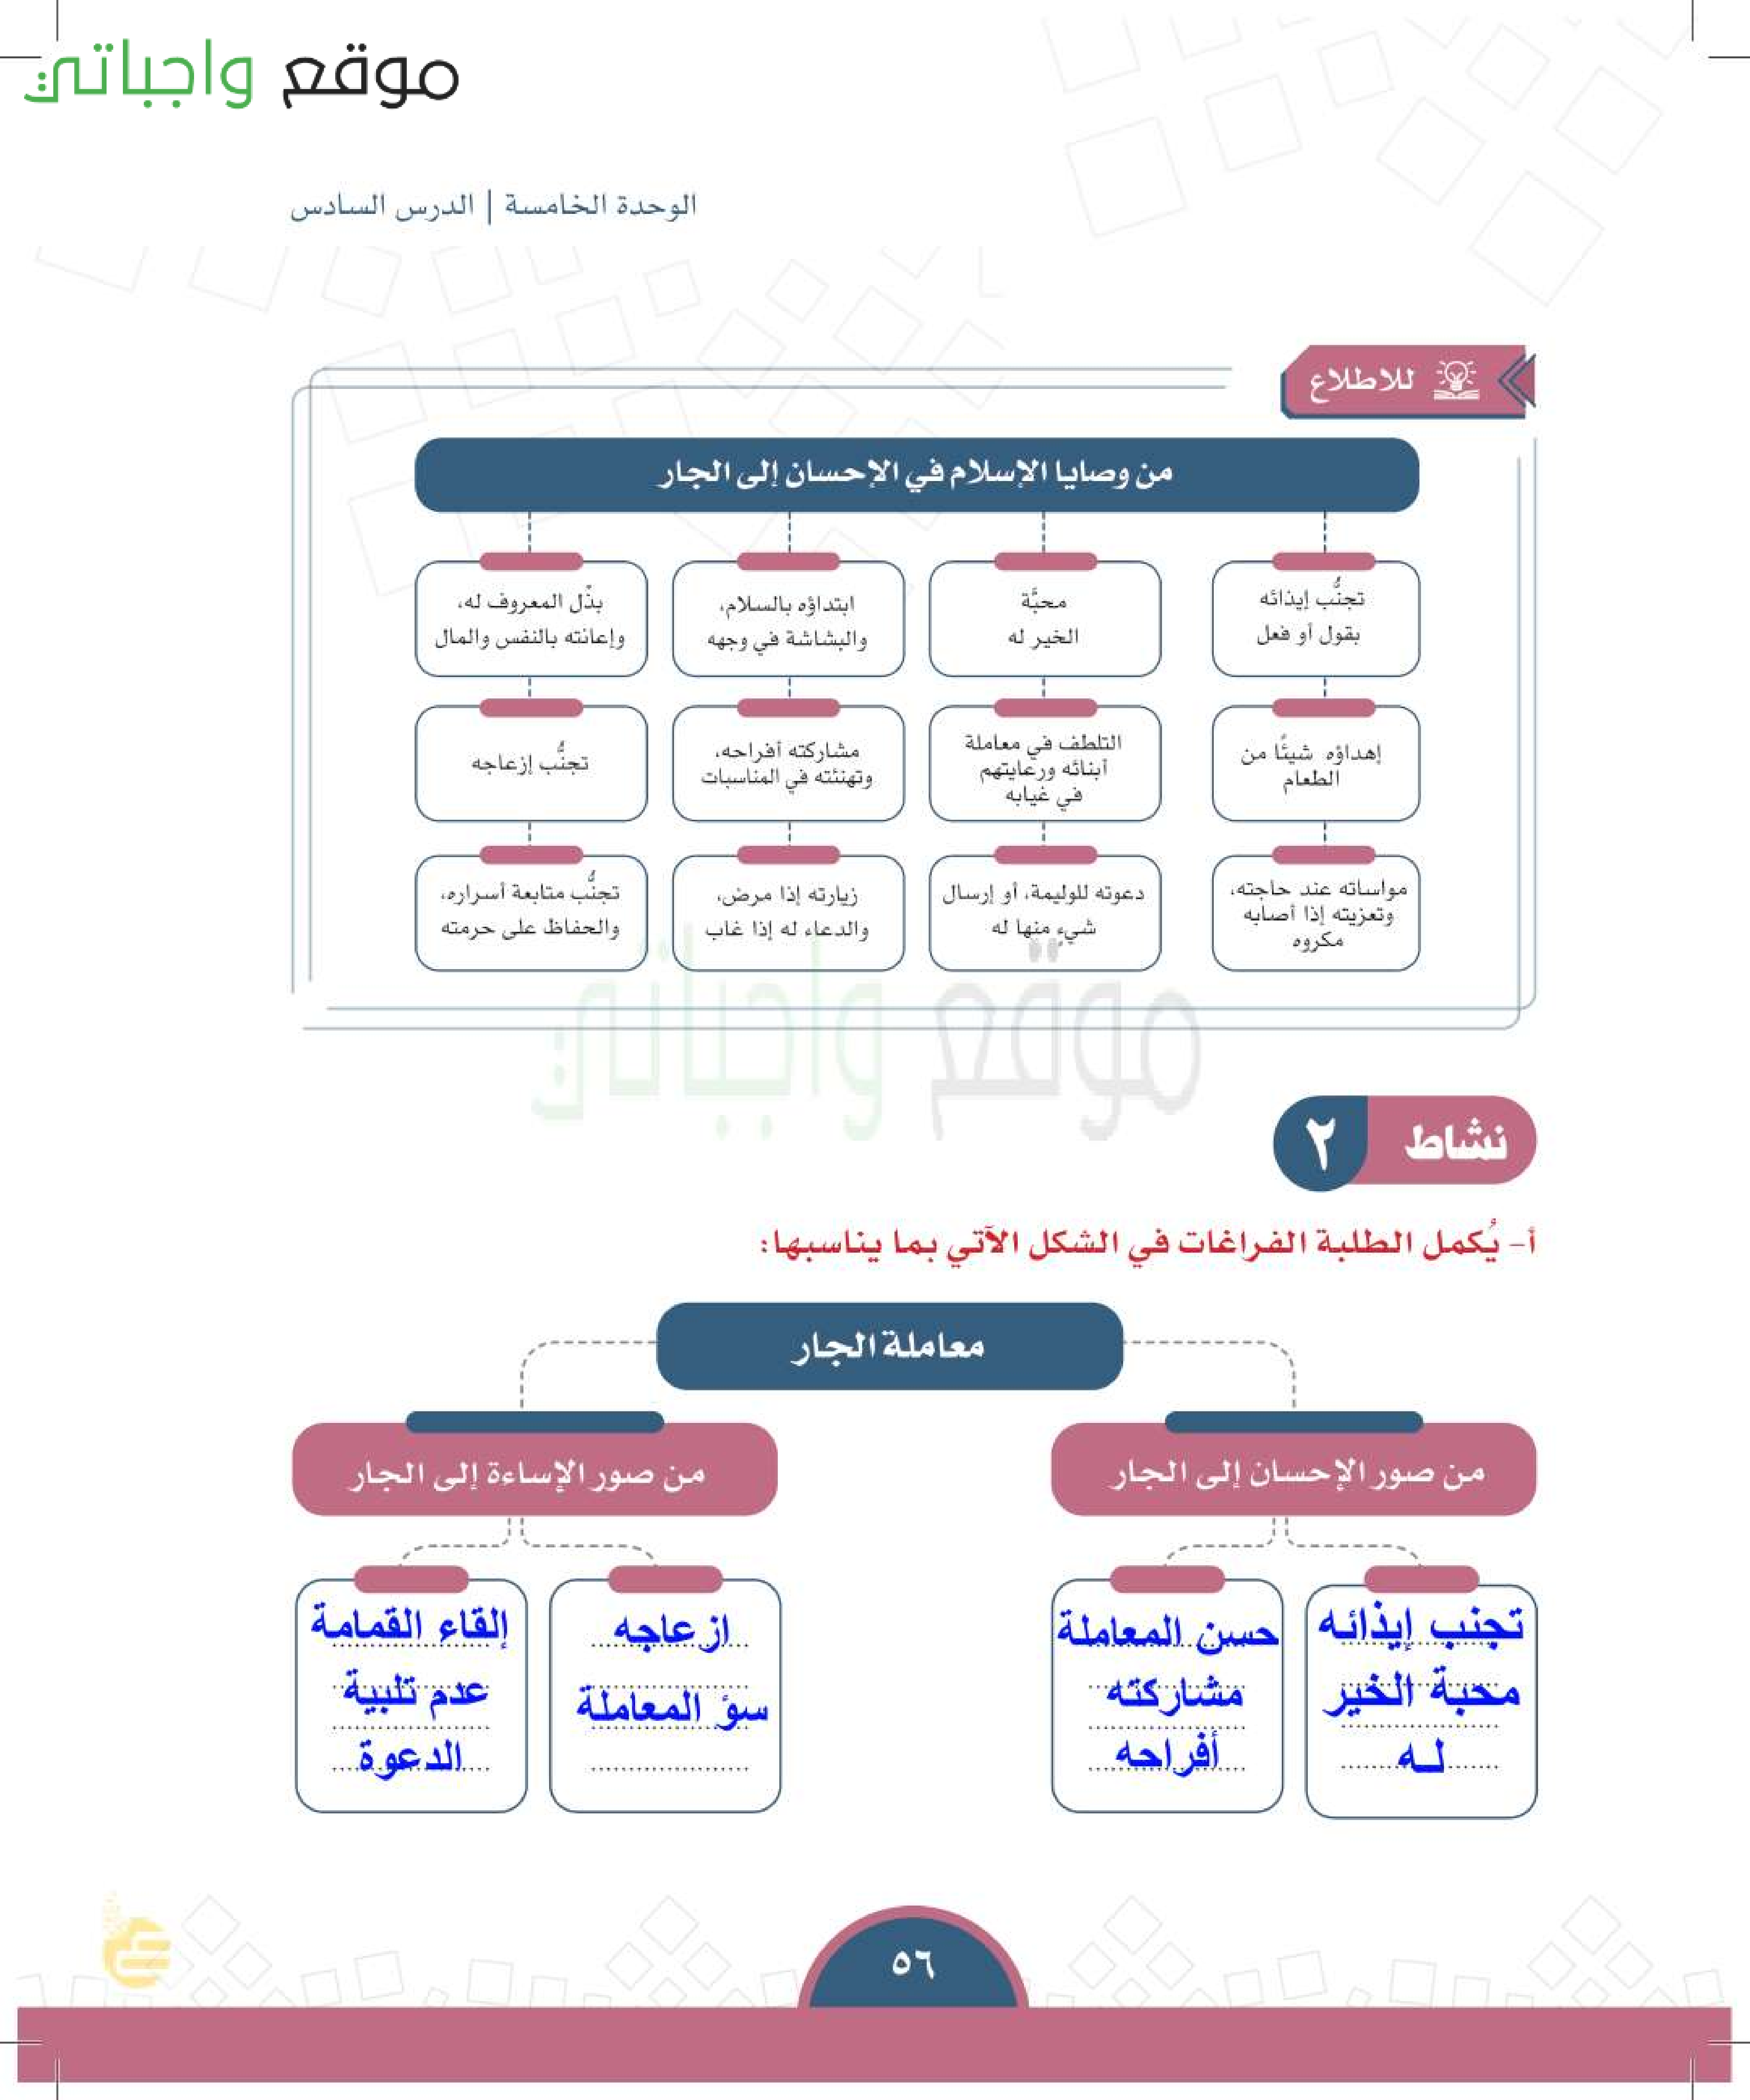 موقع واجباتي
الوحدة الخامسة | الدرس السادس
للاطلاع
من وصايا الإسلام في الإحسان إلى الجار
تجنُّب إيذائه
بقول أو فعل
محبَّة
الخير له
ابتداؤه بالسلام،
والبشاشة في وجهه
بذْل المعروف له،
وإعانته بالنفس والمال
إهداؤه شيئًا من
الطعام
التلطف في معاملة
أبنائه ورعايتهم
في غيابه
مشاركته أفراحه،
وتهنئته في المناسبات
تجنُّب إزعاجه
مواساته عند حاجته،
وتعزيته إذا أصابه
مكروه
دعوته للوليمة، أو إرسال
شيءٍ منها له
زيارته إذا مرض،
والدعاء له إذا غاب
تجنُّب متابعة أسراره،
والحفاظ على حرمته
موقع واجباتي
نشاط ٢
أ- يُكمل الطلبة الفراغات في الشكل الآتي بما يناسبها:
معاملة الجار
من صور الإحسان إلى الجار
من صور الإساءة إلى الجار
تجنب إيذائه
محبة الخير
له
حسن المعاملة
مشاركته
أفراحه
ازعاجه
سؤ المعاملة
إلقاء القمامة
عدم تلبية
الدعوة
٥٦